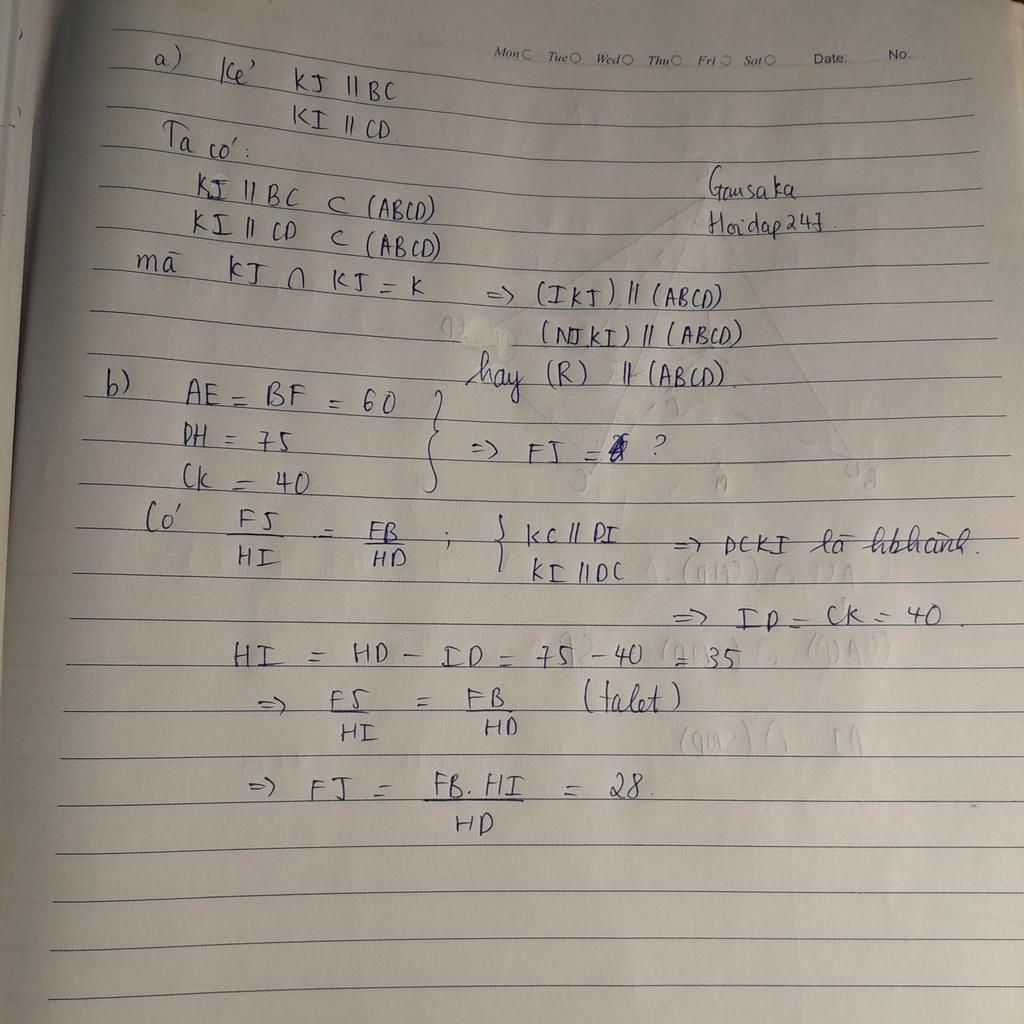 Mon Tue Wed Thu Fri Sat Date: No.
a) Kẻ KJ // BC
KI // CD.
Ta có:
KJ // BC ⊂ (ABCD)
KI // CD ⊂ (ABCD)
Gausaka
Hoidap247.
mà KJ ∩ KI = K => (IKJ) // (ABCD)
(NJKI) // (ABCD)
hay (R) // (ABCD).
b) AE = BF = 60
DH = 75
CK = 40
=> FJ = ?
Có FJ/HI = FB/HD ; { KC // DI => DCKI là hbhành.
KI // DC
=> ID = CK = 40.
HI = HD - ID = 75 - 40 = 35
=> FJ/HI = FB/HD (talet)
=> FJ = FB.HI/HD = 28.